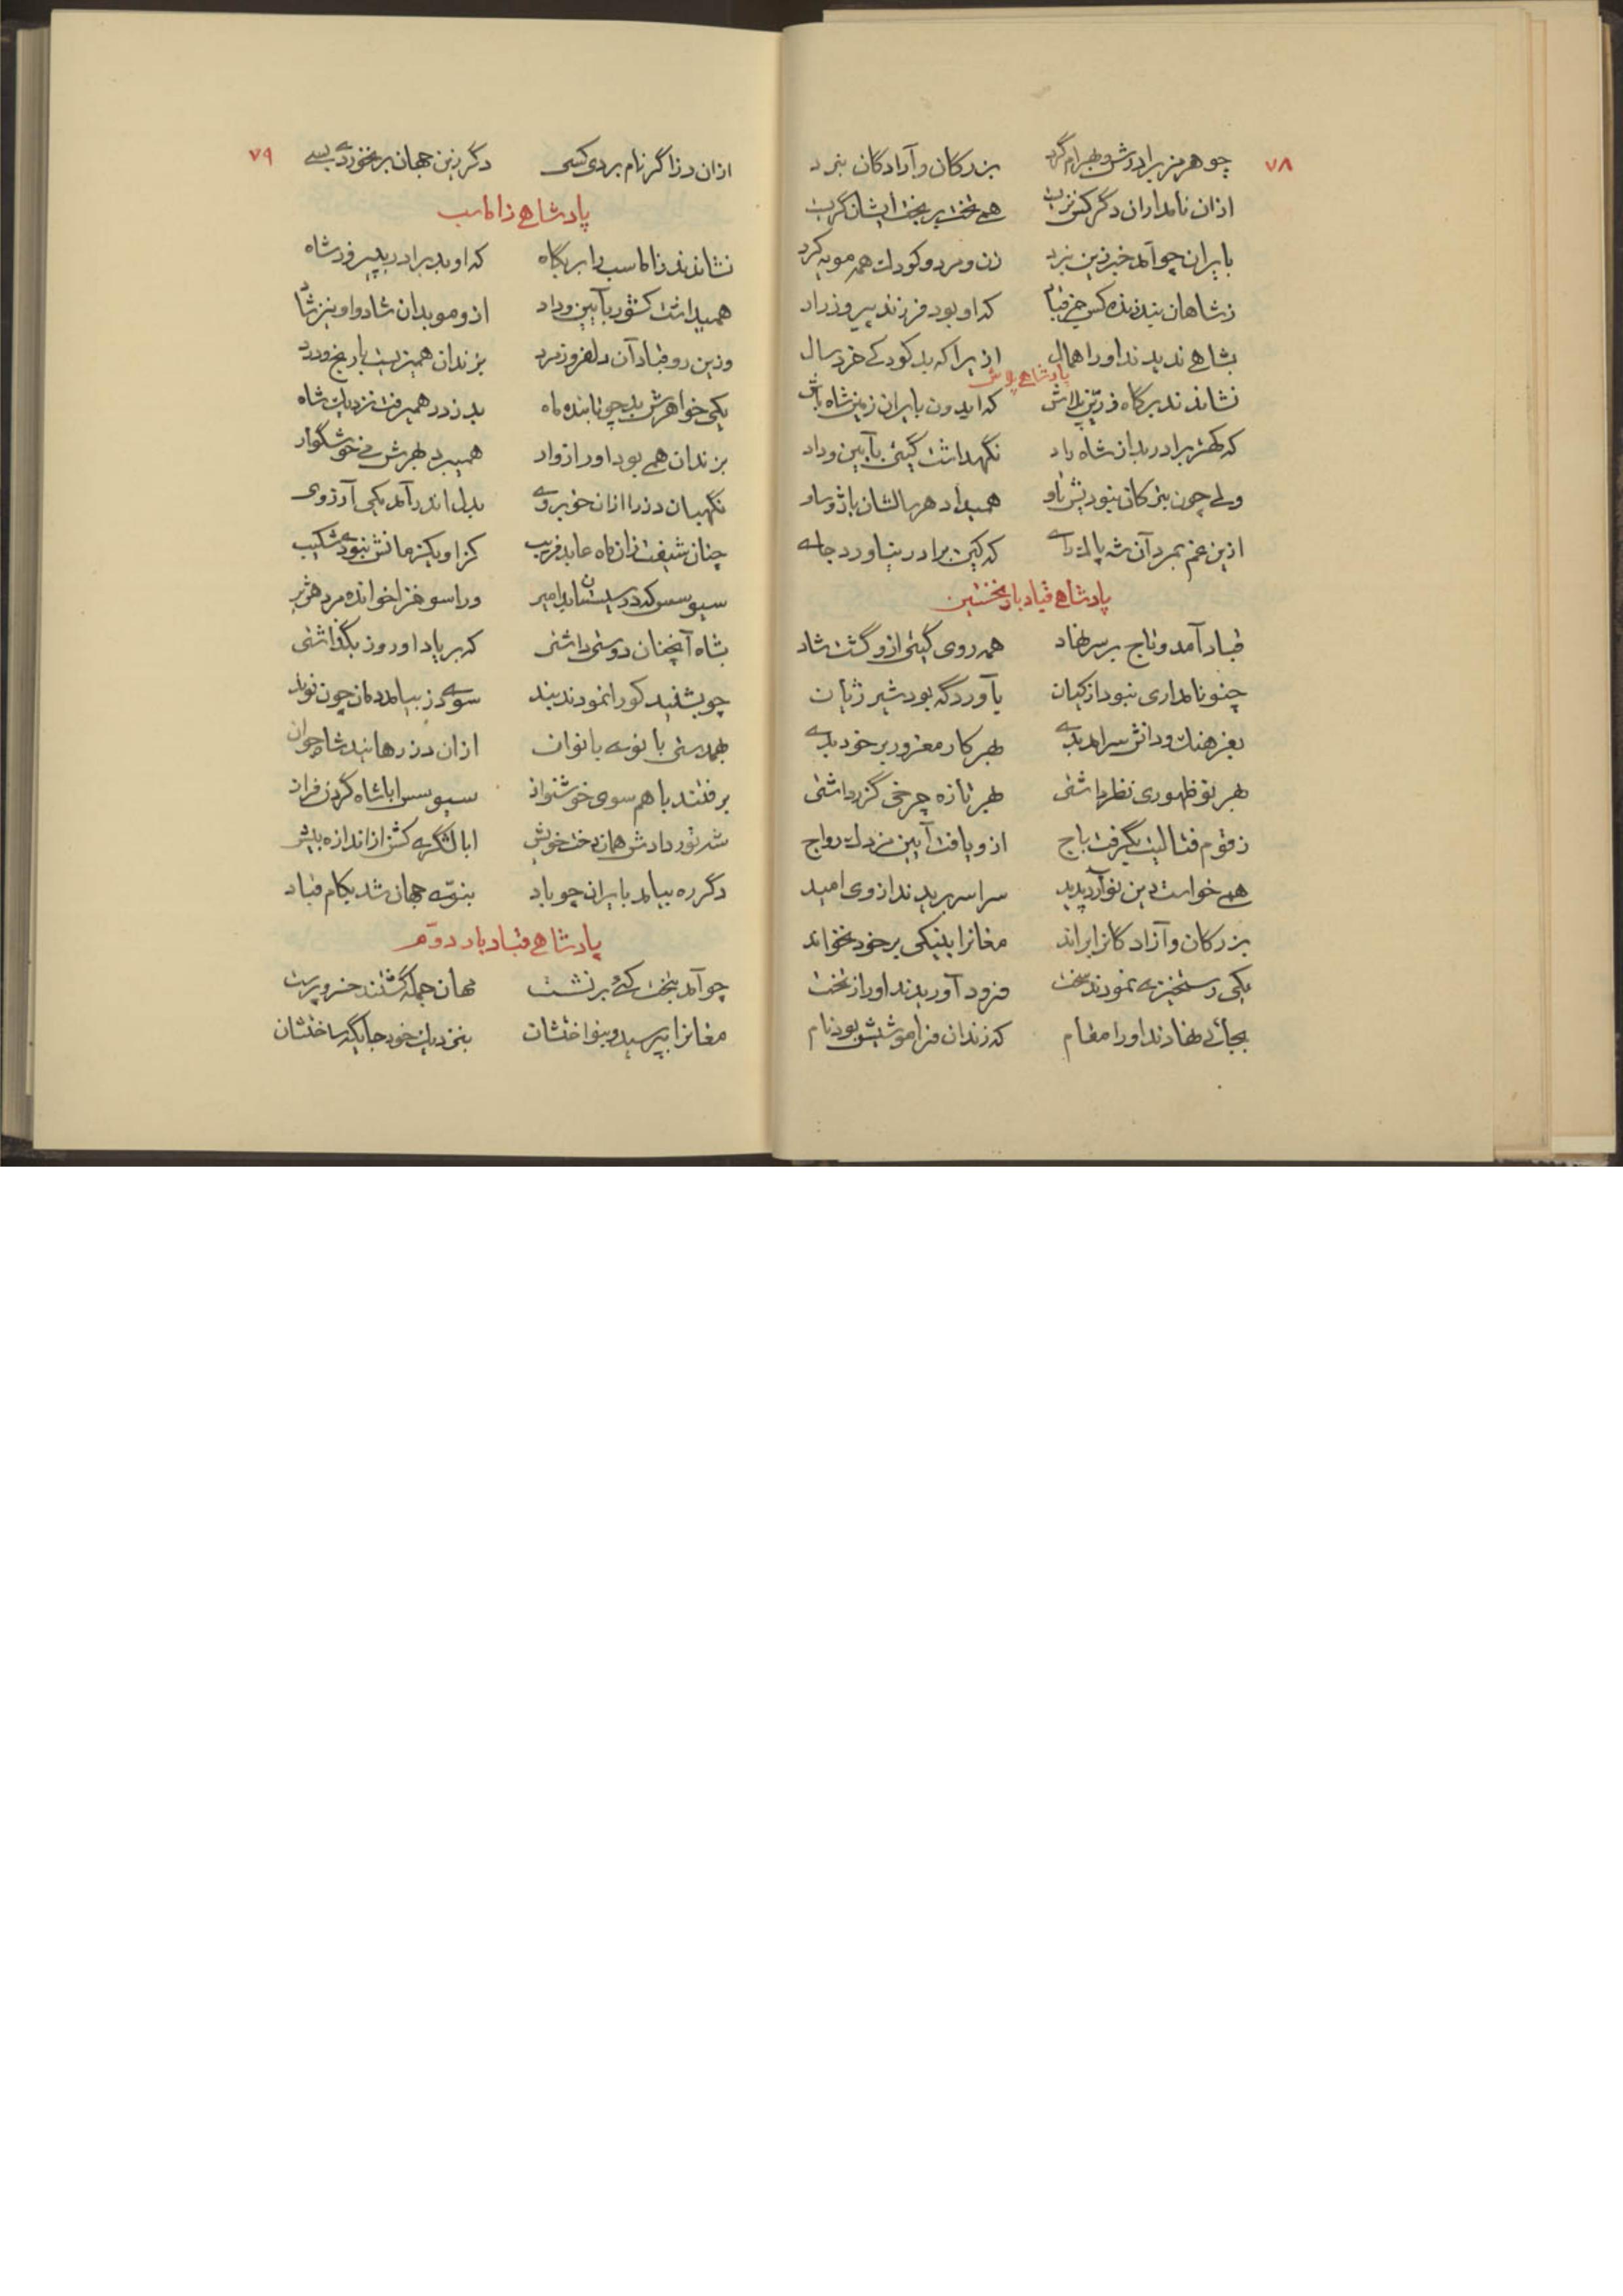 ۷۸
چو هرمز برادرش و بهرام گرد بزرگان و آزادگان نبرد
ازان نامداران دگر کس نزیست همی تخت بر بخت ایشان گریست
بایران چو آمد خبر زین نبرد زن و مرد و کودک همه مویه کرد
ز شاهان نبد زنده کس جز قباد که او بود فرزند پیروز راد
بشاهی ندیدند او را همال ازیرا که بد کودکی خرد سال
پادشاهی پلاش
نشاندند بر گاه زرین پلاش که ایدون بایران زمین شاه باش
که کهتر برادر بدان شاه راد نگهداشت گیتی بآیین و داد
ولی چون بترکان نبودیش تاو همیداد هر سالشان باژ و ساو
ازین غم بمرد آن شه پاک رای که کین برادر نیاورد جای
پادشاهی قباد بار نخستین
قباد آمد و تاج بر سر نهاد همه روی گیتی ازو گشت شاد
چنو نامداری نبود از کیان بآوردگه بود شیر ژیان
بفرهنگ و دانش سرامد بدی بهر کار مغرور بر خود بدی
بهر نو ظهوری نظر داشتی بهر تازه چرخی گزر داشتی
ز قوم فتالیت بگرفت باج ازو یافت آیین مزدک رواج
همی خواست دین نو آرد پدید سراسر بریدند از وی امید
بزرگان و آزادگانرا براند مغانرا بنیکی بر خود نخواند
یکی رستخیزی نمودند سخت فرود آوریدند او را ز تخت
بجائی نهادند او را مقام که زندان فراموشیش بود نام
۷۹
ازان دز اگر نام بردی کسی دگر زین جهان بر نخوردی بسی
پادشاهی زاماسب
نشاندند زاماسب را بر بگاه که او بد برادر بپیروز شاه
همیداشت کشور بآیین و داد ازو موبدان شاد و او نیز شاد
وزین رو قباد آن دلفروز مرد بزندان همیزیست با رنج و درد
یکی خواهرش بد چو تابنده ماه بدز در همیرفت نزدیک شاه
بزندان همی بود اورا زوار همیبرد بهرش می خوشگوار
نگهبان دز را ازان خوبروی بدل اندر آمد یکی آرزوی
چنان شیفت زان ماه عابد فریب کزاو یکزمانش نبودی شکیب
سیوسس که در سیستان بد امیر ورا سوفزا خوانده مرد هژیر
بشاه آنچنان دوستی داشتی که بر یاد او روز بگذاشتی
چو بشنید کورا نمودند بند سوی دز بیامد دمان چون نوند
بهمدستی بانوی بانوان ازان دز رهانید شاه جوان
برفتند با هم سوی خوشنواز سیوسس ابا شاه گردن فراز
شه تور دادش همان دخت خویش ابا لشگری کش ز اندازه بیش
دگر ره بیامد بایران چو باد بنوی جهان شد بکام قباد
پادشاهی قباد بار دوم
چو آمد بتخت کئی بر نشست مهان جمله گشتند خسرو پرست
مغانرا بپرسید و بنواختشان بنزدیک خود جایگه ساختشان